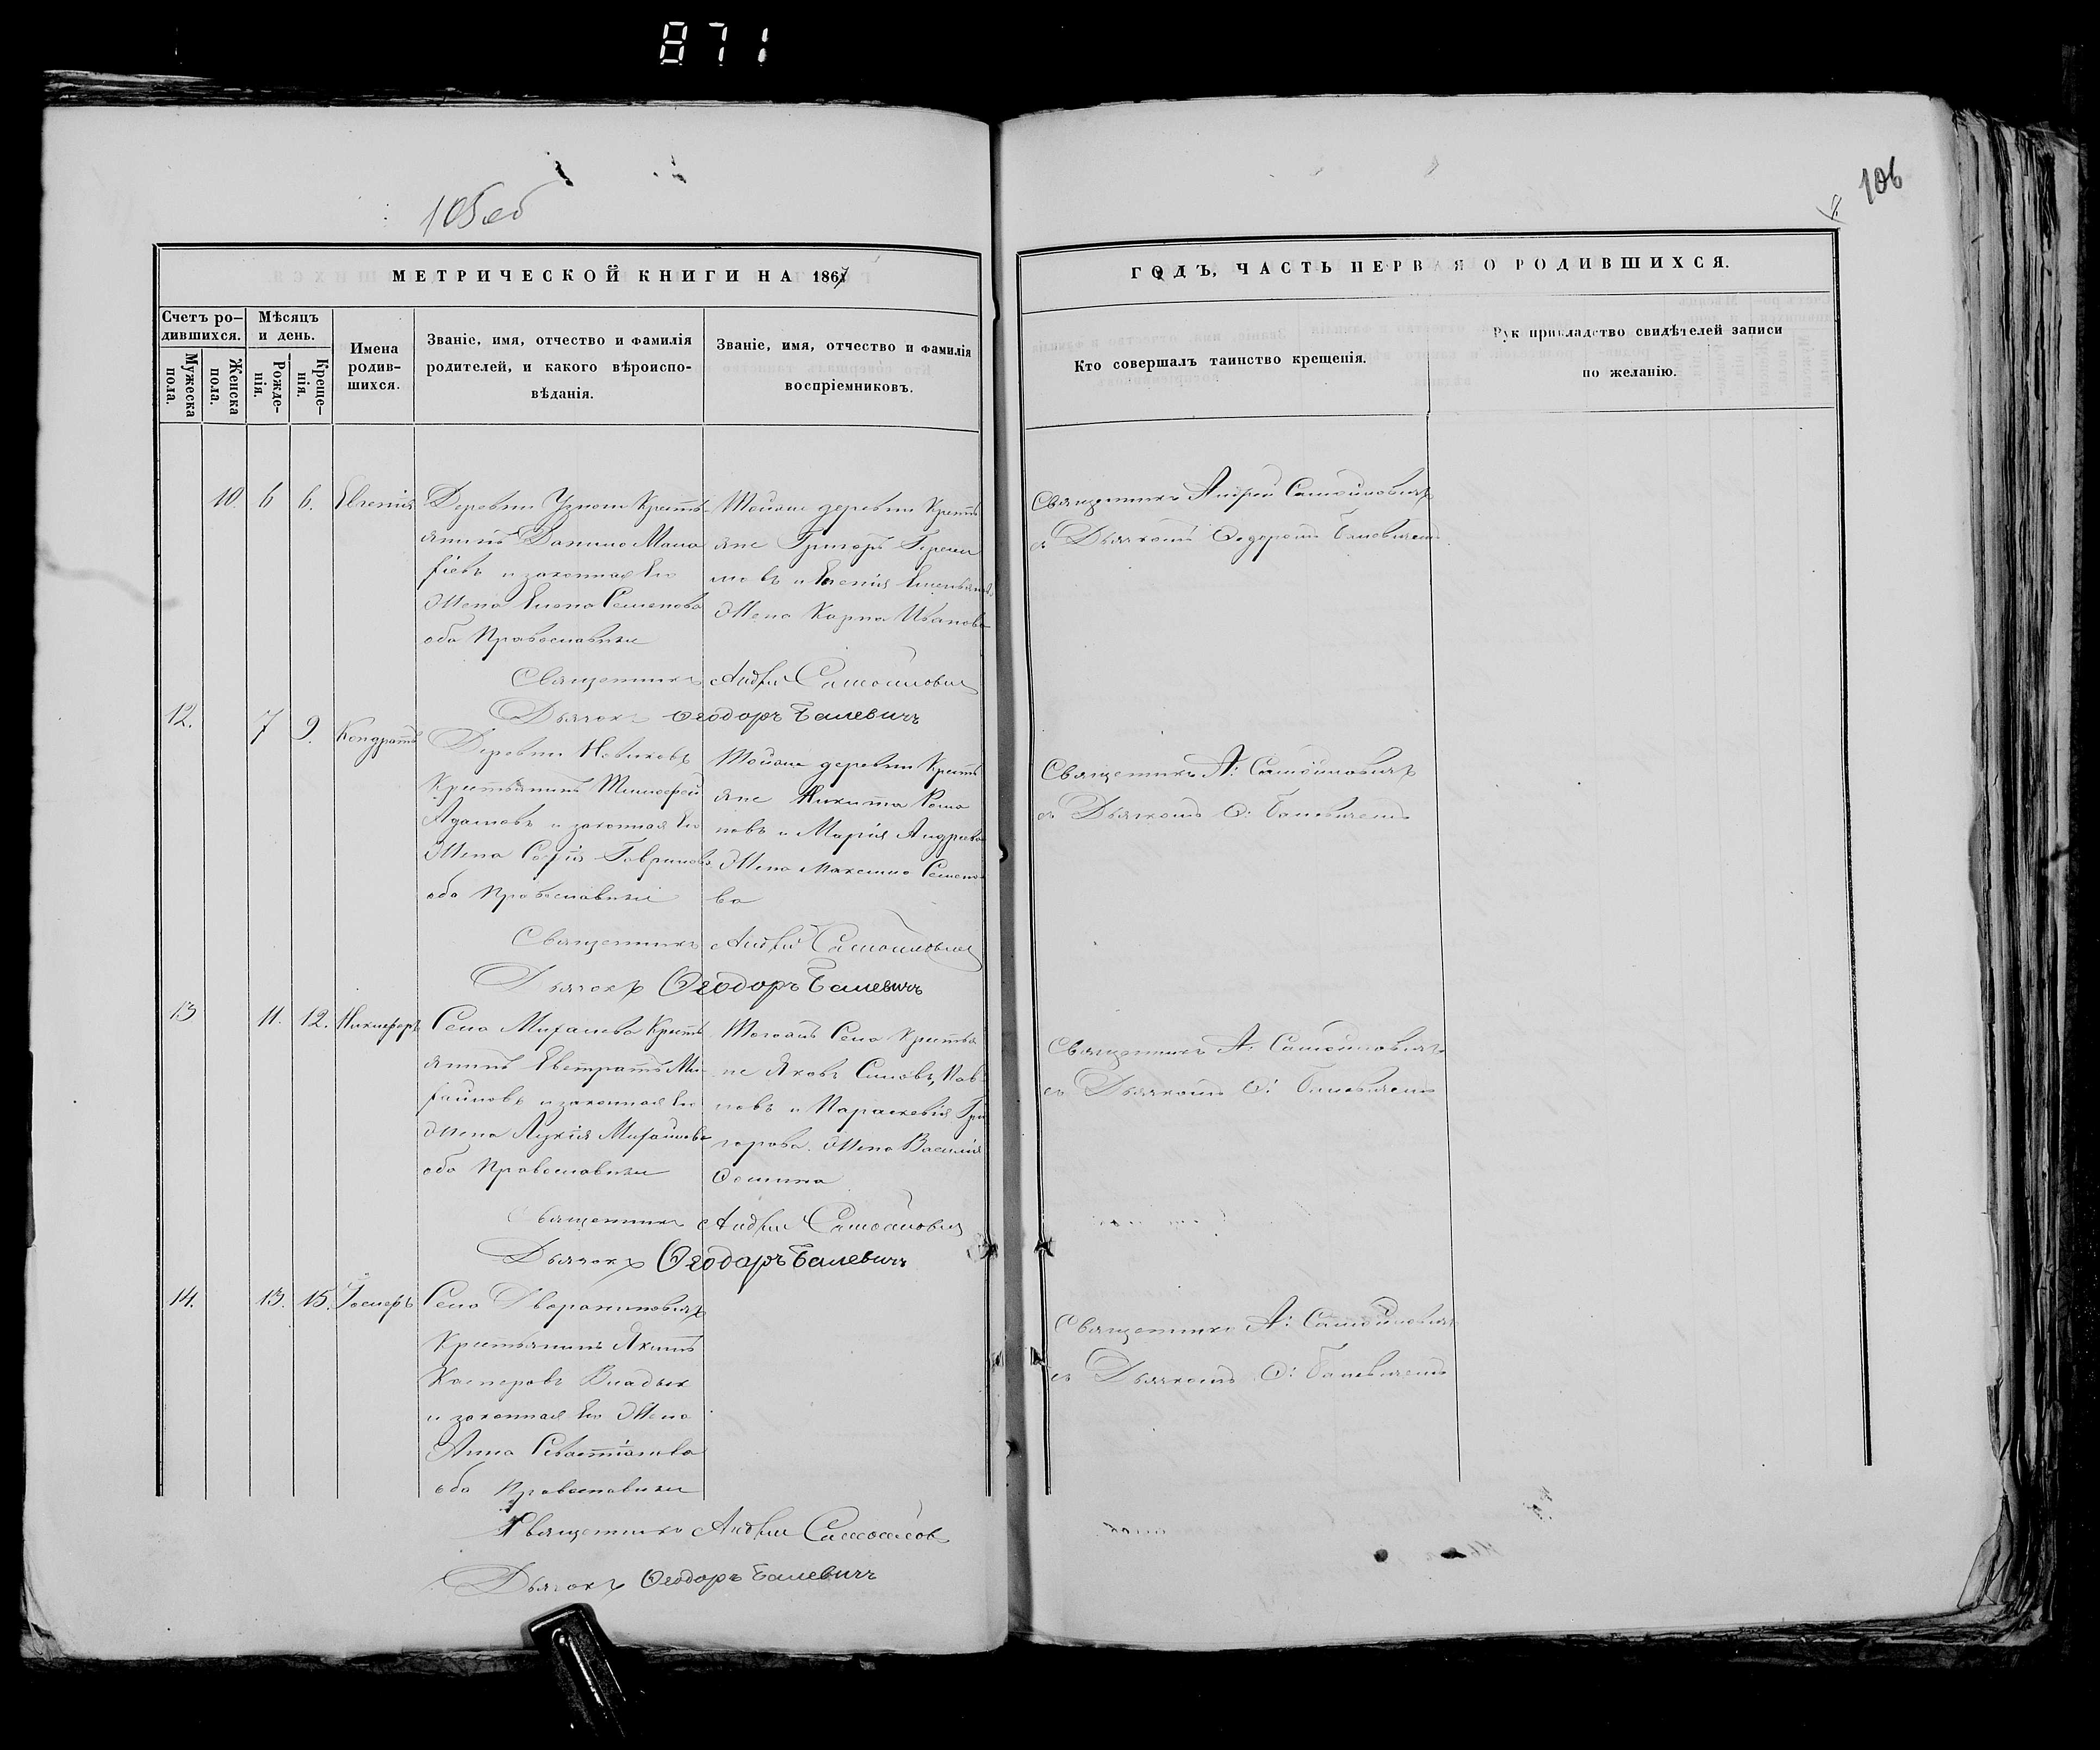 871
105об
106
МЕТРИЧЕСКОЙ КНИГИ НА 1867
ГОДЪ, ЧАСТЬ ПЕРВАЯ О РОДИВШИХСЯ.
Счетъ ро-
дившихся.
Мужеска
пола.
Женска
пола.
Мѣсяцъ
и день.
Рожде-
нія.
Креще-
нія.
Имена
родив-
шихся.
Званіе, имя, отчество и фамилія
родителей, и какого вѣроиспо-
вѣданія.
Званіе, имя, отчество и фамилія
воспріемниковъ.
Кто совершалъ таинство крещенія.
Рукоприкладство свидѣтелей записи
по желанію.
10. 6 6.
Деревни Крестья-
янинъ Данило
и законная Его
Жена Елена Семенова
оба Православные
Тойже деревни Крестья
яне Григорь
и
Жена Карпа Иванова
Священникъ Андрей Самойловичъ
съ Дьячкомъ Ѳедоромъ Балевичемъ
Священникъ Андрей Самойлович
Дьячокъ Ѳеодоръ Балевичъ
12. 7 9. Кондратъ
Деревни Новиковъ
Крестьянинъ Тимофей
Адамовъ и законная Его
Жена Софія Гаврилова
оба Православные
Тойже деревни Кресть
яне Никита Рома
новъ и Марія Андреева
Жена Максима Семено
ва
Священникъ А: Самойловичъ
съ Дьячкомъ Ѳ: Балевичемъ
Священникъ Андрей Самойлович
Дьячокъ Ѳеодоръ Балевичъ
13 11. 12. Никифоръ
Села Михалева Кресть
янинъ Евстратъ Ми-
хайловъ и законная Его
жена Лукія Михайлова
оба Православные
Тогожъ Села Крестья
не Яковъ
и Параскевія Гри
горова Жена Василія
Ѳомина
Священникъ А: Самойловичъ
съ Дьячкомъ Ѳ: Балевичемъ
Священникъ Андрей Самойлович
Дьячокъ Ѳеодоръ Балевичъ
14. 13. 15.
Села
Крестьянинъ Якимъ
Касперовъ Владык
и законная Его Жена
Анна Севастіанова
оба Православные
Священникъ А: Самойловичъ
съ Дьячкомъ Ѳ: Балевичемъ
Священникъ Андрей Самойлов
Дьячокъ Ѳеодоръ Балевичъ